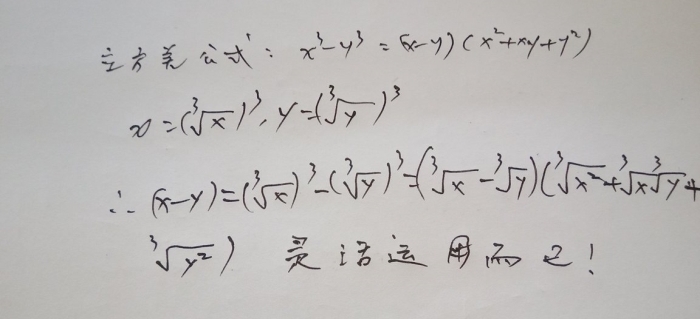 立方差公式: x³-y³=(x-y)(x²+xy+y²)
x=(∛x)³, y=(∛y)³
∴(x-y)=(∛x)³-(∛y)³=(∛x-∛y)(∛x²+∛x∛y+
∛y²) 灵活运用而已!